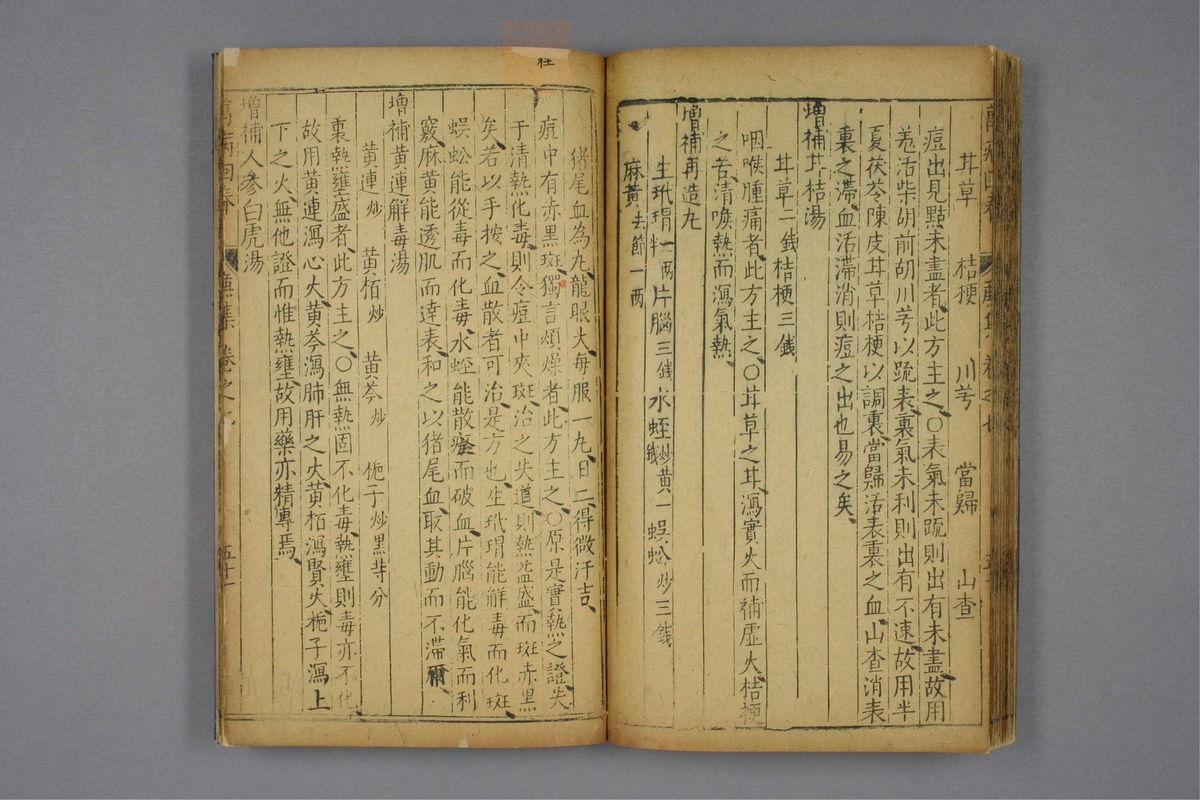 甘草　桔梗　川芎　當歸　山查
痘出見點未盡者此方主之○表氣未䟽則出有未盡故用
羗活柴胡前胡川芎以䟽表裏氣未利則出有不速故用半
夏茯苓陳皮甘草桔梗以調裏當歸活表裏之血山查消表
裏之滯血活滯消則痘之出也易之矣
增補甘桔湯
甘草二錢桔梗三錢
咽喉腫痛者此方主之○甘草之甘瀉實火而補虛火桔梗
之苦清喉熱而瀉氣熱
增補再造丸
生玳瑁一兩半片腦三錢水蛭炒黄一錢蜈蚣炒三錢
麻黄去節一兩
猪尾血為丸龍眼大每服一丸日二得微汗吉
痘中有赤黒斑獨言煩燥者此方主之○原是實熱之證失
于清熱化毒則令痘中夾斑治之失道則熱益盛而斑赤黒
矣若以手按之血散者可治是方也生玳瑁能解毒而化斑
蜈蚣能從毒而化毒水蛭能散瘀而破血片腦能化氣而利
竅麻黄能透肌而達表和之以猪尾血取其動而不滯爾
增補黄連解毒湯
黄連炒　黄栢炒　黄芩炒　梔子炒黒等分
裏熱壅盛者此方主之○無熱固不化毒熱壅則毒亦不化
故用黄連瀉心火黄芩瀉肺肝之火黄栢瀉賢火梔子瀉上
下之火無他證而惟熱壅故用藥亦精專焉
增補人參白虎湯
萬病回春　集　卷之七　五十一